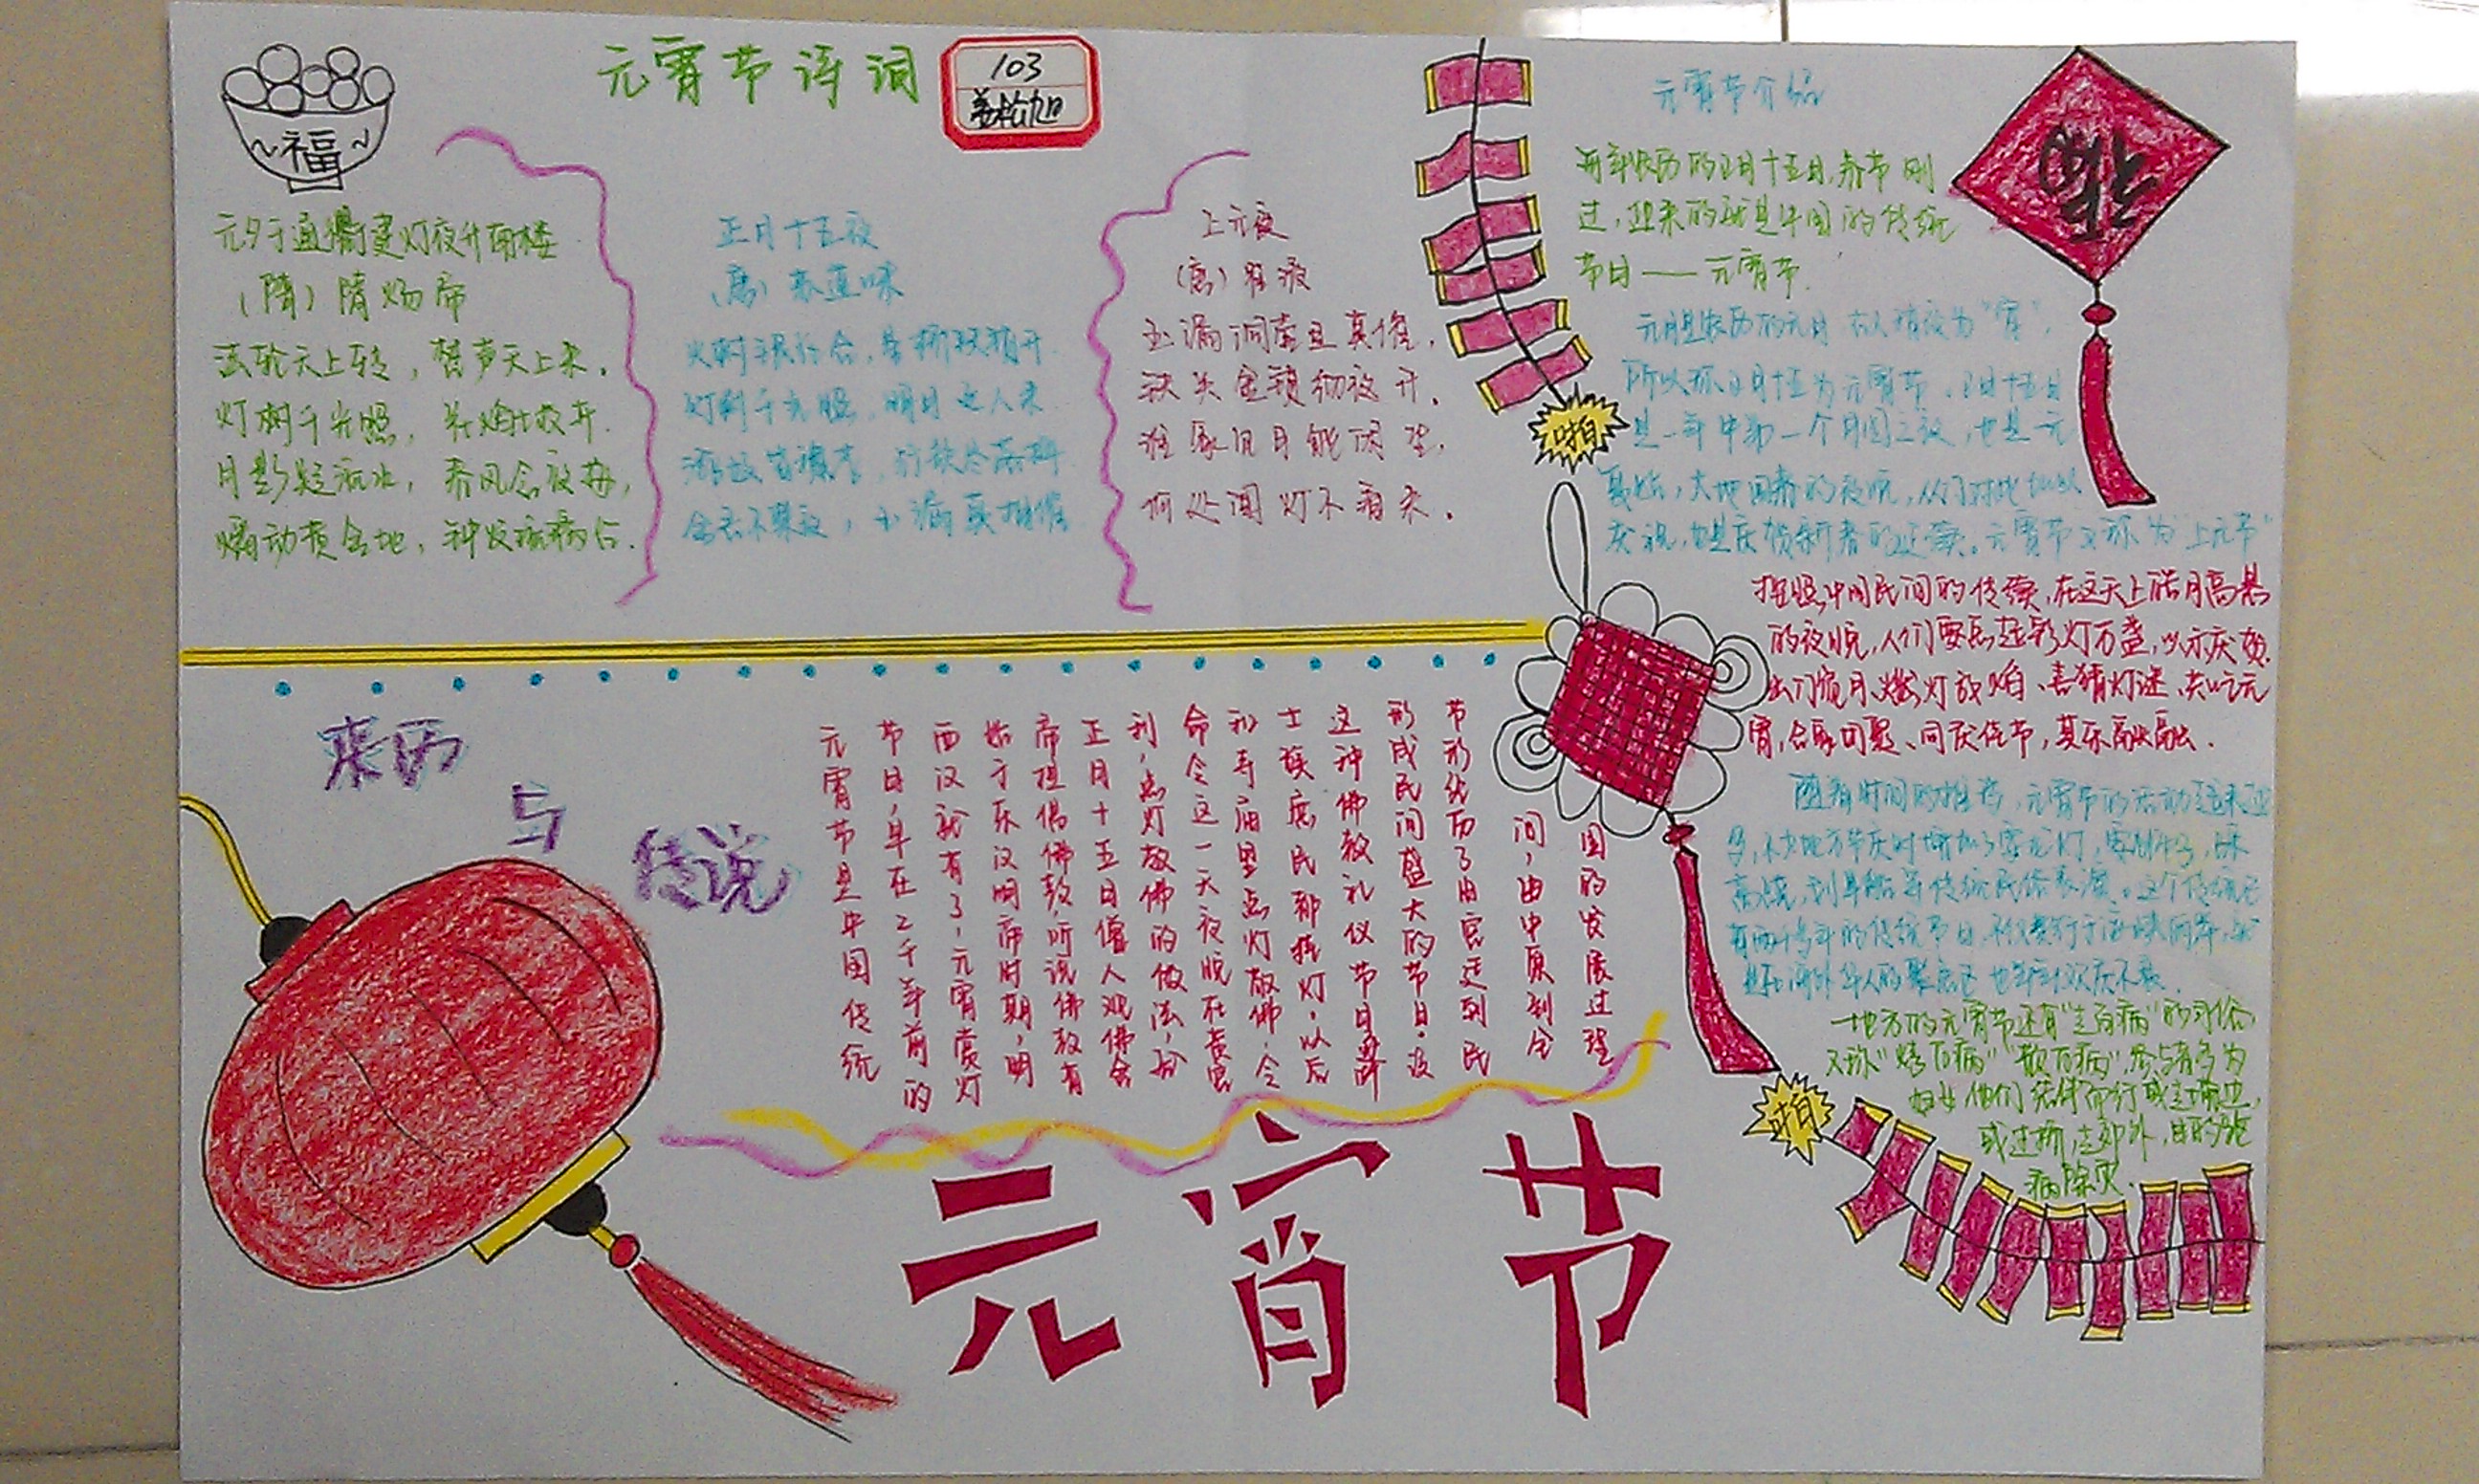 福
元宵节诗词
103
元夕于通衢建灯夜升南楼
(隋) 隋炀帝
法轮天上转，梵声天上来，
灯树千光照，花焰七枝开
月影疑流水，春风含夜梅，
燔动黄金地，钟发琉璃台．
正月十五夜
(唐) 苏道味
火树银花合，星桥铁锁开
灯树千光照，明月逐人来
游妓皆秾李，行歌尽落梅
金吾不禁夜，玉漏莫相催
上元夜
(唐) 崔液
玉漏铜壶且莫催，
铁关金锁彻夜开，
谁家见月能闲坐，
何处闻灯不看来．
啪
元宵节介绍
每年农历的正月十五日，春节刚
过，迎来的就是中国的传统
节日——元宵节．
福
元月是农历的元月 古人称夜为“宵”，
所以称正月十五为元宵节．正月十五日
是一年中第一个月圆之夜，也是一元
复始，大地回春的夜晚，人们对此加以
庆祝，也是庆贺新春的延续。元宵节又称为“上元节”
按照中国民间的传统，在这天上皓月高悬
的夜晚，人们要点起彩灯万盏，以示庆贺．
出门赏月、燃灯放焰、喜猜灯谜、共吃元
宵，合家团聚、同庆佳节，其乐融融．
随着时间的推移，元宵节的活动越来越
多，不少地方节庆时增加了耍龙灯，耍狮子，踩
高跷，划旱船等传统民俗表演。这个传统已
有两千多年的传统节日，不仅盛行于海峡两岸，就
是在海外华人的聚居区也年年欢庆不衰．
一地方的元宵节还有“走百病”的习俗，
又称“烤百病”“散百病”，参与者多为
妇女他们结伴而行或走墙边，
或过桥，走郊外，目的是驱
病除灾．
啪
来历
与
传说
元宵节是中国传统
节日，早在2千年前的
西汉就有了，元宵赏灯
始于东汉明帝时期，明
帝提倡佛教，听说佛教有
正月十五日僧人观佛舍
利，点灯敬佛的做法，就
命令这一天夜晚在皇宫
和寺庙里点灯敬佛，令
士族庶民都挂灯，以后
这种佛教礼仪节日逐渐
形成民间盛大的节日。该
节形经历了由宫廷到民
间，由中原到全
国的发展过程
元宵节